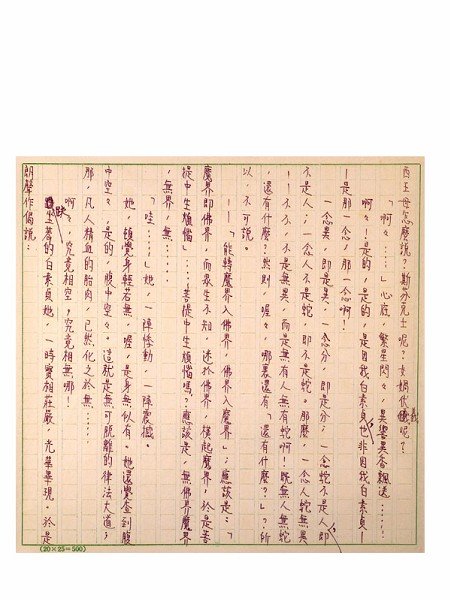 西王母怎麼說？斯芬克士呢？女媧伏羲呢？
「啊々……」心底，繁星閃々，異響異香飄送……！
啊々！是的，是的，是因我白素貞，也非因我白素貞！
——是那一念，那一念啊！
一念異，即是異，一念分，即是分；一念蛇不是人，即
不是人；一念人不是蛇，即不是蛇。那麼，一念人蛇無異
——不々，不是無異，而是無有人無有蛇啊！既無人無蛇
，還有什麼？然則，喔々，哪裏還有「還有什麼？」？所
以，不可說。
——「能轉魔界入佛界，佛界入魔界」；應該是：「
魔界即佛界，而眾生不知，迷於佛界，橫起魔界，於是菩
提中生煩惱」……菩提中生煩惱嗎？應該是，無佛界魔界
，無界，無……
「哇……」她，一陣悸動，一陣震撼。
她，頓覺身輕若無，喔，是身無似有。她還覺查到腹
中空々，是的，腹中空々。這就是無可脫離的律法大道；
那，凡人精血的胎肉，已然化之於無……
啊々，究竟相空，究竟相無哪！
趺坐著的白素貞她，一時寶相莊嚴，光華畢現。於是
朗聲作偈說：
(20×25=500)